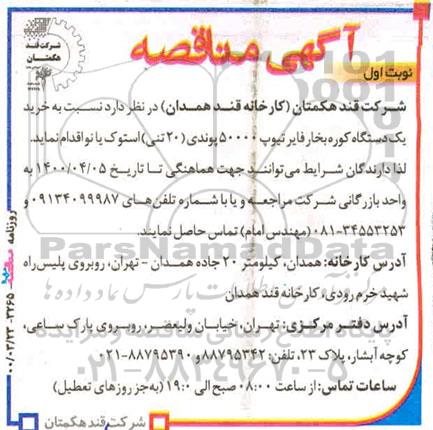 آگهی مناقصه
شرکت قند هکمتان
نوبت اول
شرکت قند هکمتان (کارخانه قند همدان) در نظر دارد نسبت به خرید
یک دستگاه کوره بخار فایر تیوپ ۵۰۰۰۰ پوندی (۲۰ تنی) استوک یا نو اقدام نماید.
لذا دارندگان شرایط می‌توانند جهت هماهنگی تا تاریخ ۱۴۰۰/۰۴/۰۵ به
واحد بازرگانی شرکت مراجعه و یا با شماره تلفن‌های ۰۹۱۳۴۰۹۹۹۸۷ و
۰۸۱-۳۴۵۵۳۲۵۳ (مهندس امام) تماس حاصل نمایند.
آدرس کارخانه: همدان، کیلومتر ۲۰ جاده همدان - تهران، روبروی پلیس راه
شهید خرم رودی، کارخانه قند همدان
آدرس دفتر مرکزی: تهران، خیابان ولیعصر، روبروی پارک ساعی،
کوچه آبشار، پلاک ۲۳، تلفن: ۸۸۷۹۵۳۴۲ و ۸۸۷۹۵۳۹۰-۰۲۱
ساعات تماس: از ساعت ۰۸:۰۰ صبح الی ۱۹:۰۰ (به جز روزهای تعطیل)
شرکت قند هکمتان
روزنامه مناقصه ۳۲۶۵-۰۰/۰۳/۲۳
ParsNamadData
۰۲۱-۸۸۳۴۹۶۷۰-۵